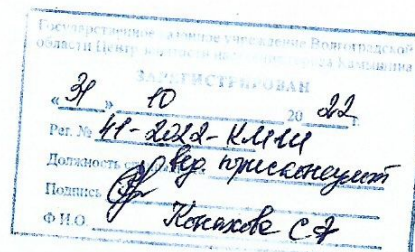 Государственное казенное учреждение Волгоградской
области Центр занятости населения города Камышина
ЗАРЕГИСТРИРОВАН
« 31 » 10 20 22 г.
Рег. № 41-2022-КМШ
Должность вед юрисконсульт
Подпись
Ф И О Конахова С А